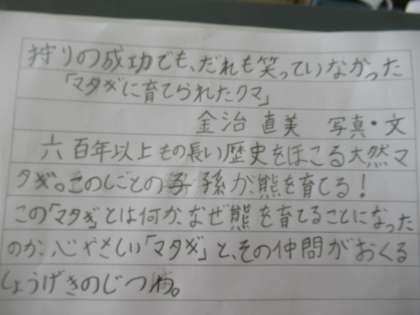 狩りの成功でも、だれも笑っていなかった
「マタギに育てられたクマ」
金治 直美 写真・文
六百年以上もの長い歴史をほこる大然マ
タギ。このしごとの子孫が、熊を育てる!
この「マタギ」とは何か、なぜ熊を育てることになった
のか、心やさしい「マタギ」と、その仲間がおくる
しょうげきのじつわ。